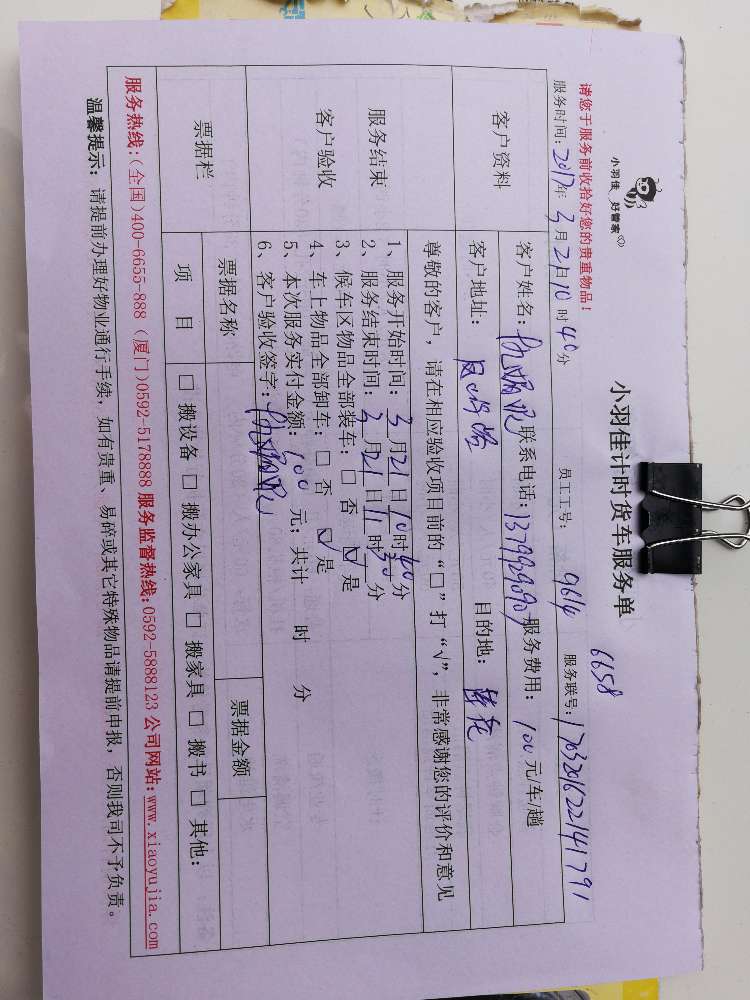 小羽佳 好管家
小羽佳计时货车服务单
6658
请您于服务前收拾好您的贵重物品！
服务时间：2017年 3月21日10时40分 员工工号： 9614 服务联号：170320162214179 1
客户资料
客户姓名： 联系电话：13799290907 服务费用：100元/车/趟
客户地址： 目的地：
尊敬的客户，请在相应验收项目前的“□”打“√”，非常感谢您的评价和意见
服务结束
客户验收
1、服务开始时间：3月21日10时40分
2、服务结束时间：3月21日11时30分
3、候车区物品全部装车：□ 否 ☑ 是
4、车上物品全部卸车：□ 否 ☑ 是
5、本次服务实付金额：100元；共计 时 分
6、客户验收签字：
票据栏
票据名称 票据金额
项 目 □ 搬设备 □ 搬办公家具 □ 搬家具 □ 搬书 □ 其他：
服务热线：(全国)400-6655-888 (厦门)0592-5178888 服务监督热线：0592-5888123 公司网站：www.xiaoyujia.com
温馨提示：请提前办理好物业通行手续，如有贵重、易碎或其它特殊物品请提前申报，否则我司不予负责。